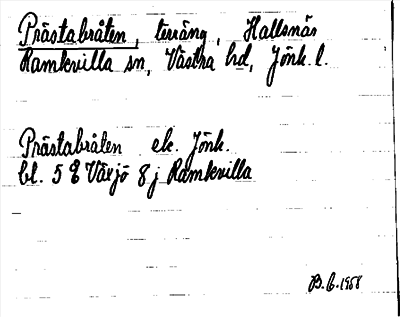 Prästabråten, terräng, Hallsnäs
Ramkvilla sn, Västra hd, Jönk. l.
Prästabråten ek. Jönk.
bl. 5 E Växjö 8 j Ramkvilla
B. E. 1958